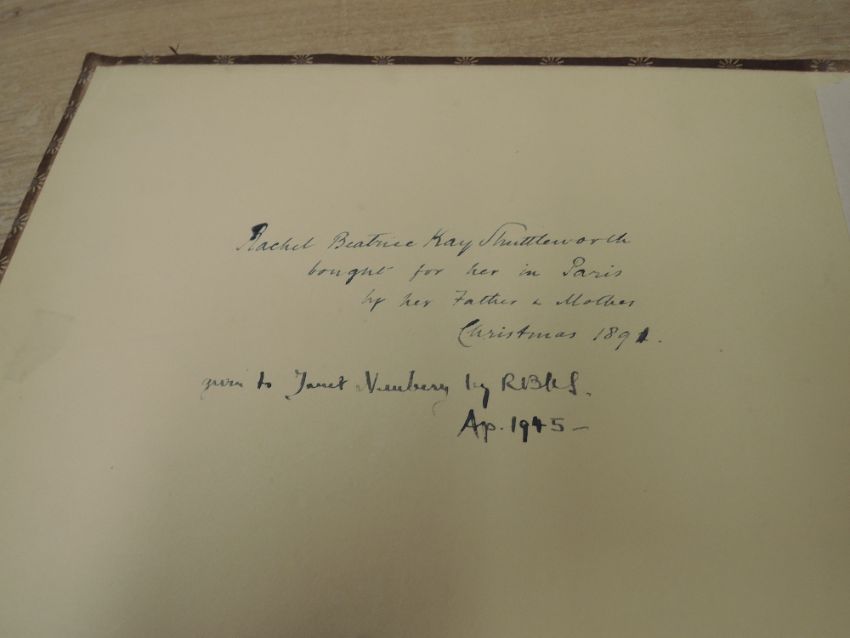 Rachel Beatrice Kay Shuttleworth
bought for her in Paris
by her Father & Mother
Christmas 1891.
given to Janet Newbery by RBKS.
Ap. 1945 —